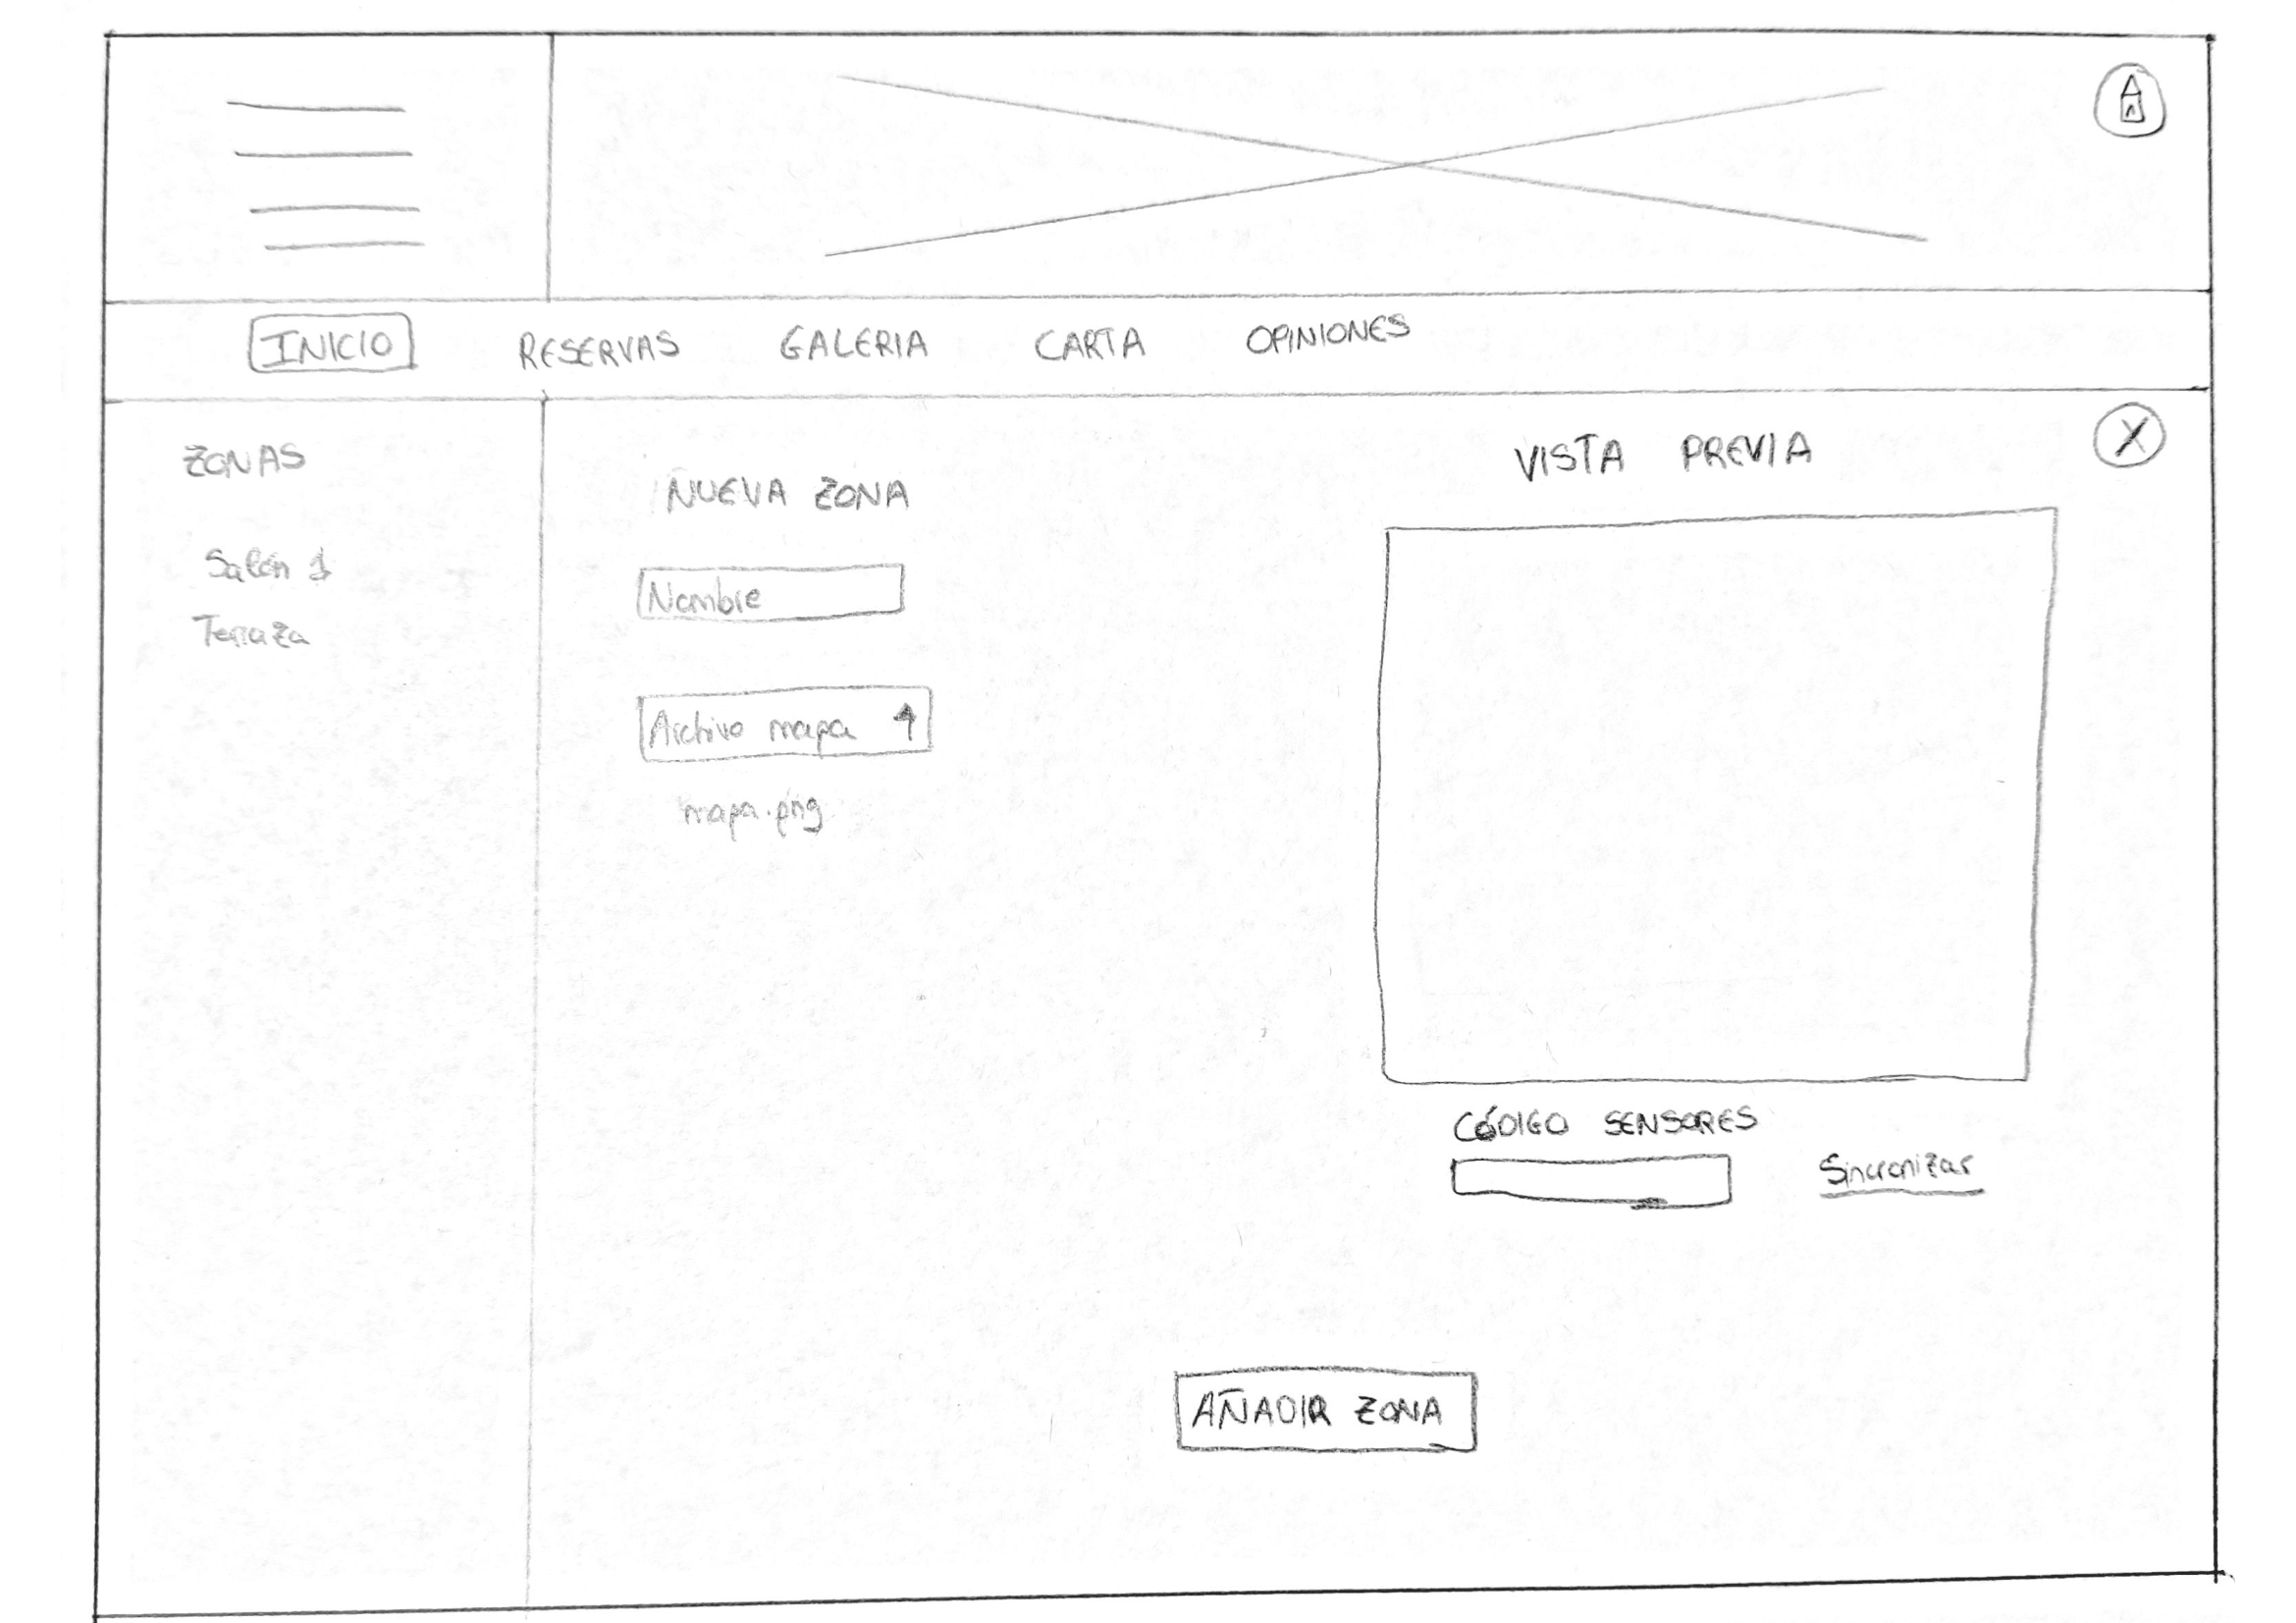 INICIO RESERVAS GALERIA CARTA OPINIONES
ZONAS
Salón 1
Terraza
NUEVA ZONA
Nombre
Archivo mapa
mapa.png
VISTA PREVIA
X
CÓDIGO SENSORES
Sincronizar
AÑADIR ZONA